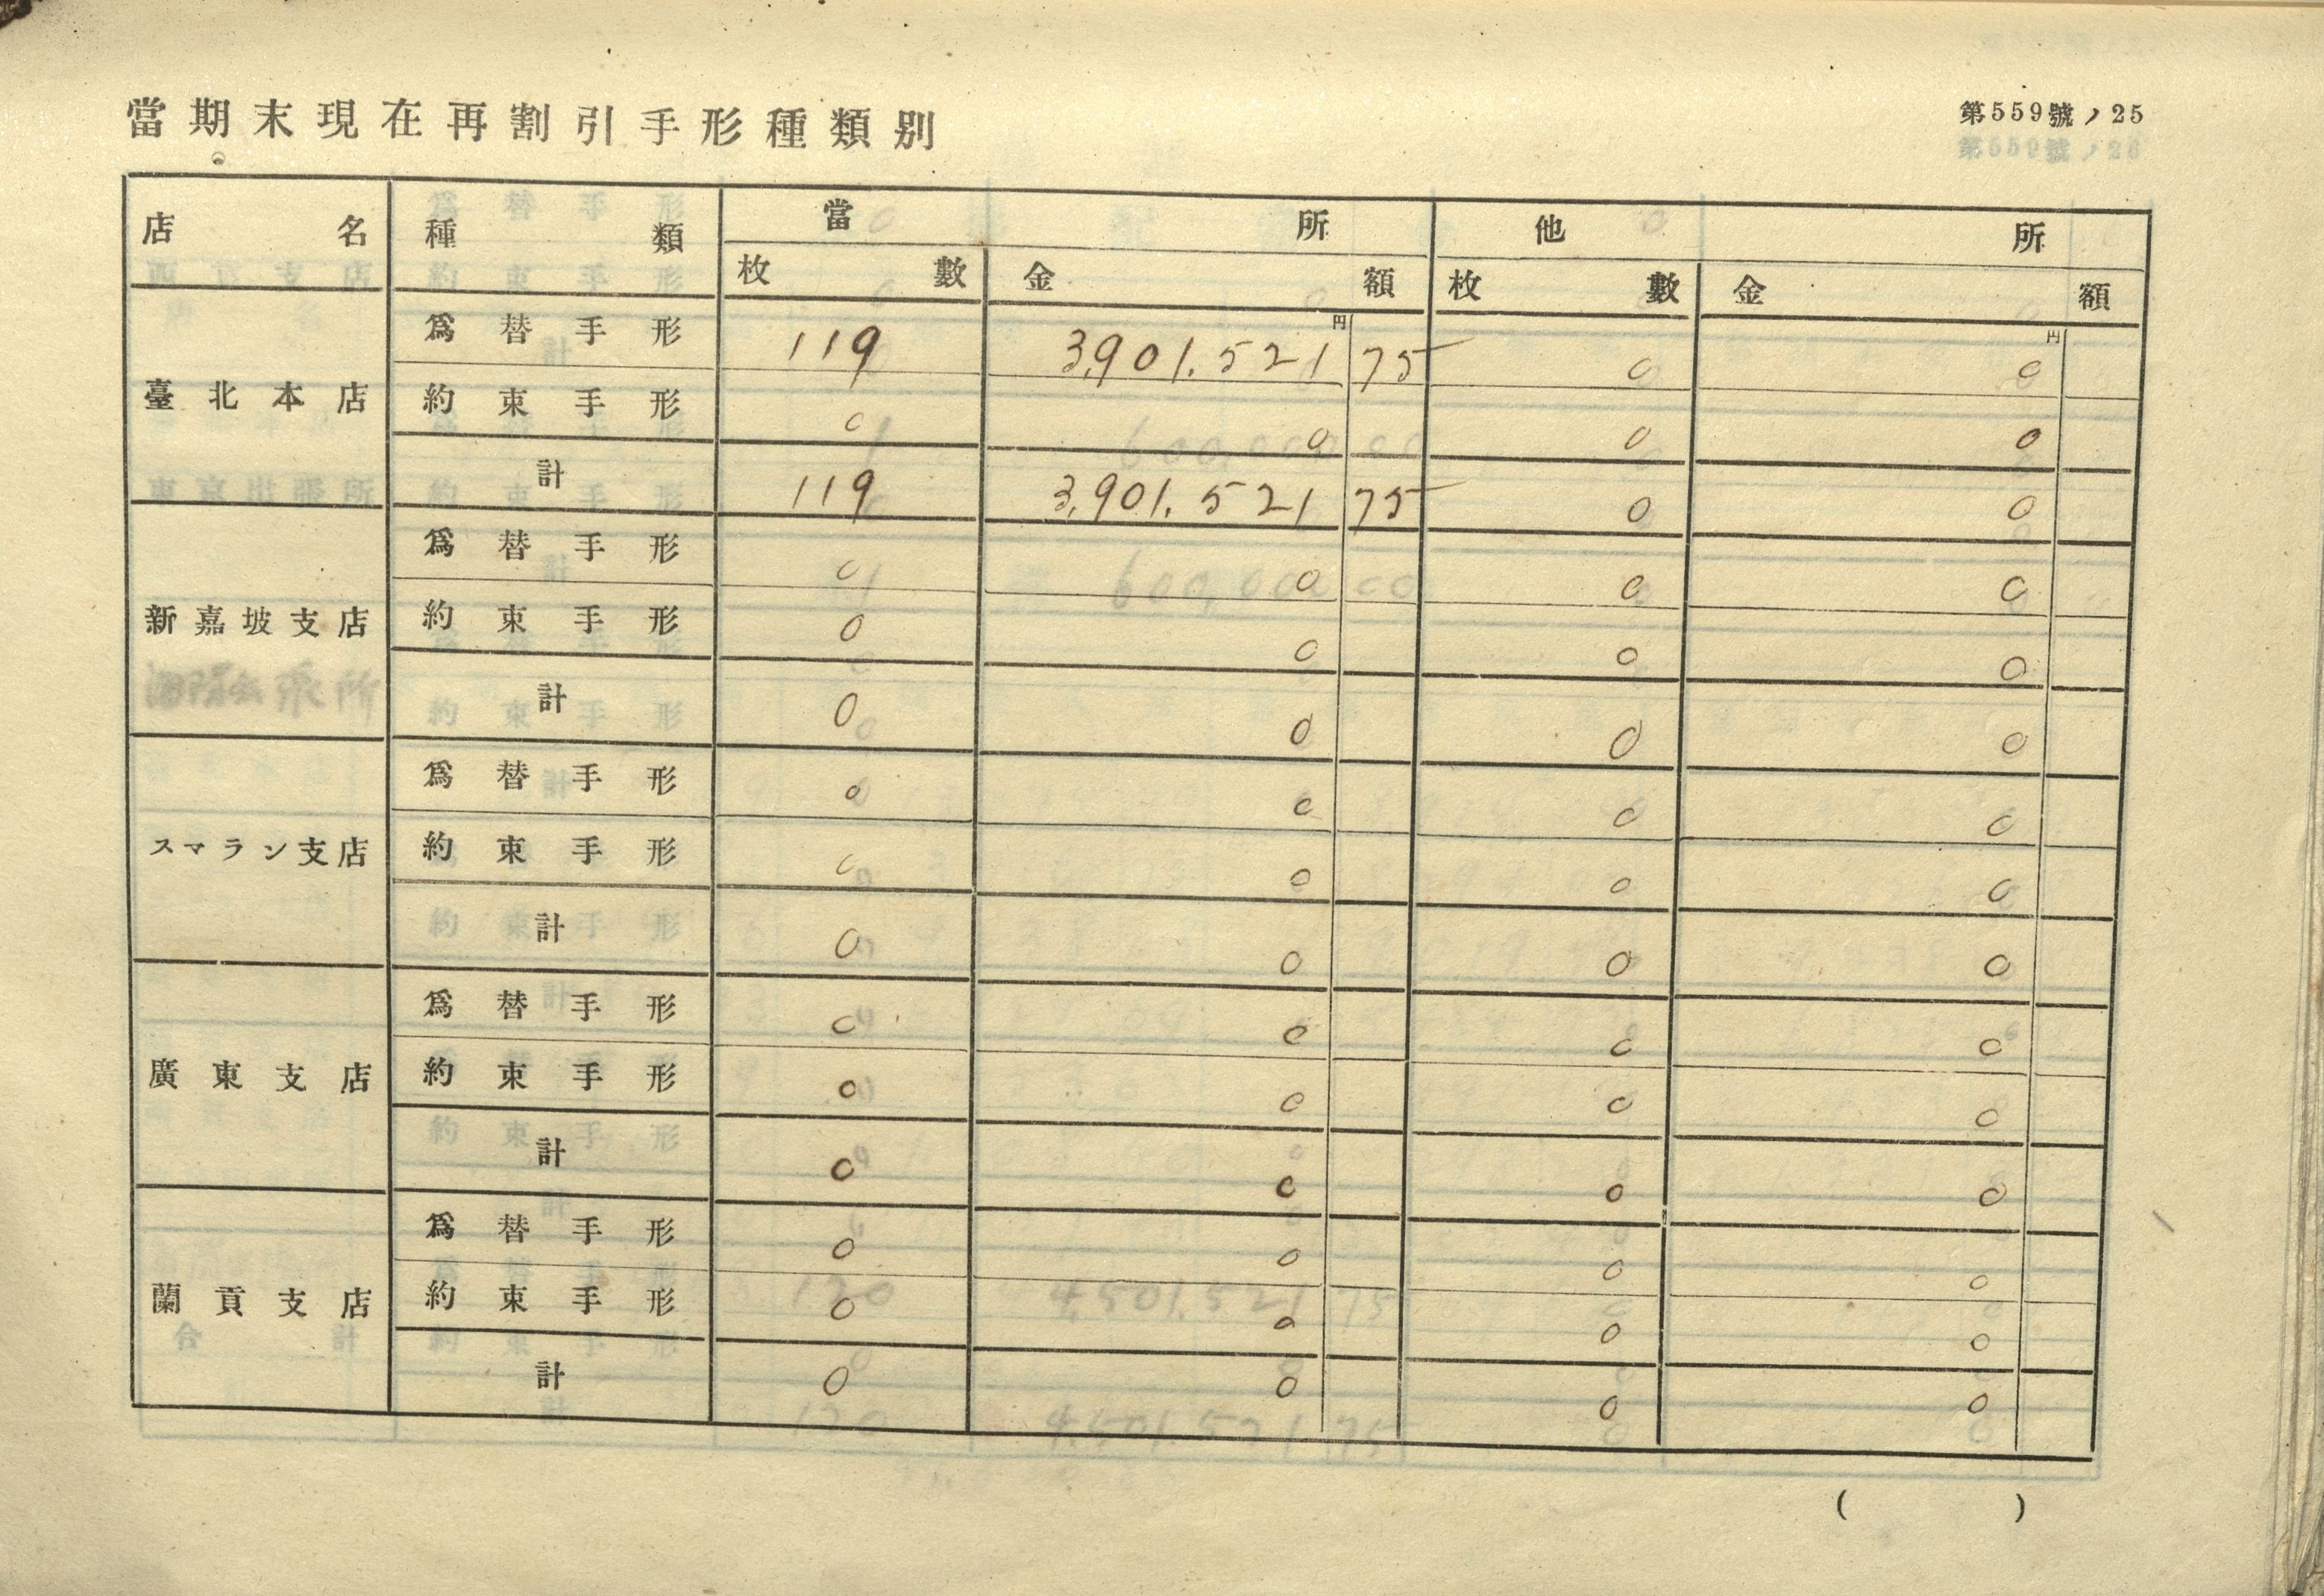 當期末現在再割引手形種類別
第559號ノ25
店名 種類 當所 他所
枚數 金額 枚數 金額
円 円
臺北本店 爲替手形 119 3,901.521 75 0 0
約束手形 0 0 0 0
計 119 3,901.521 75 0 0
新嘉坡支店 爲替手形 0 0 0 0
約束手形 0 0 0 0
計 0 0 0 0
スマラン支店 爲替手形 0 0 0 0
約束手形 0 0 0 0
計 0 0 0 0
廣東支店 爲替手形 0 0 0 0
約束手形 0 0 0 0
計 0 0 0 0
蘭貢支店 爲替手形 0 0 0 0
約束手形 0 0 0 0
計 0 0 0 0
( )